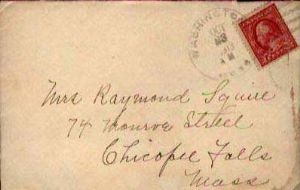 WASHINGTON
Mrs Raymond Squire
74 Monroe Street
Chicopee Falls
Mass